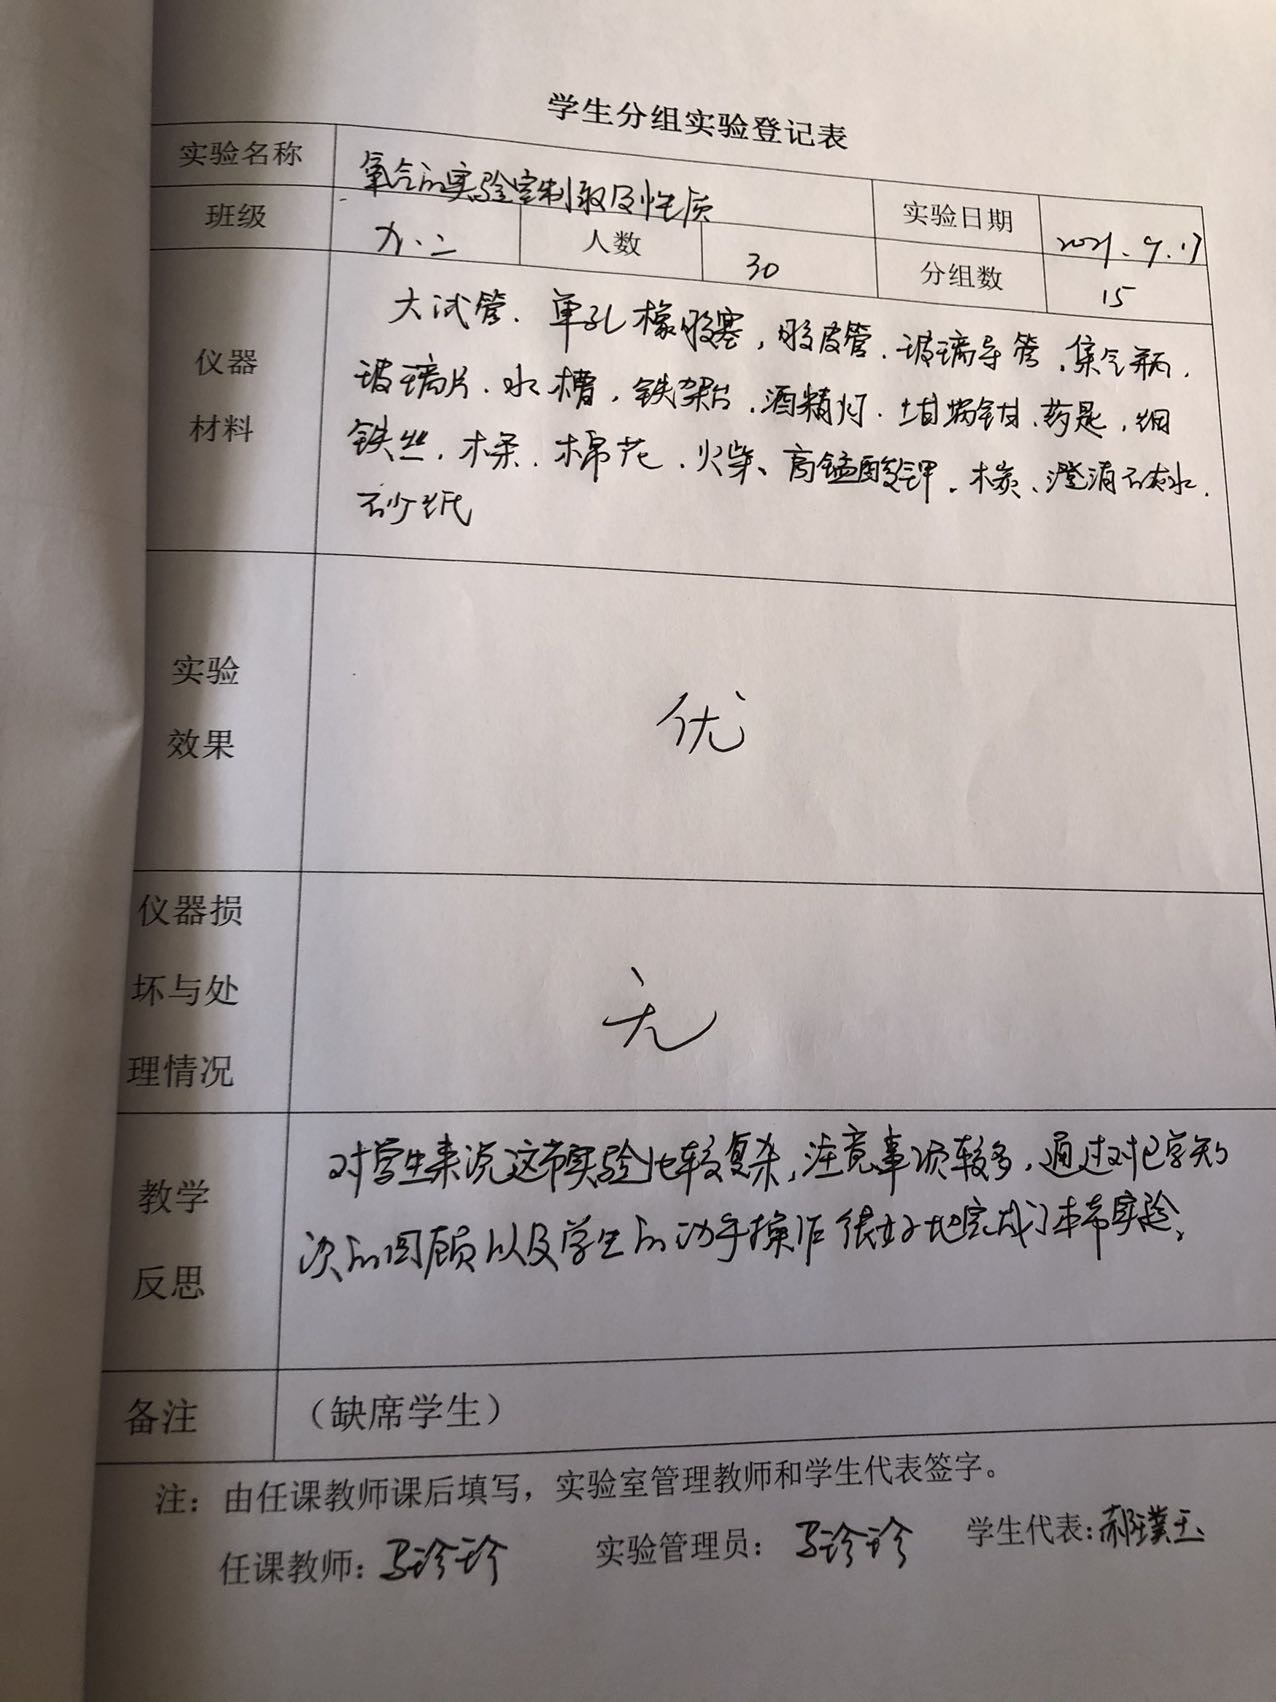 学生分组实验登记表
实验名称 氧气的实验室制取及性质 实验日期 2021.9.17
班级 九.二 人数 30 分组数 15
仪器
材料
大试管、单孔橡胶塞，胶皮管、玻璃导管，集气瓶，
玻璃片、水槽，铁架台，酒精灯、坩埚钳、药匙，细
铁丝，木条、棉花、火柴、高锰酸钾、木炭、澄清石灰水、
砂纸
实验
效果
优
仪器损
坏与处
理情况
无
教学
反思
对学生来说这节实验比较复杂，注意事项较多，通过对已学知
次的回顾以及学生的动手操作很好地完成了本节实验。
备注 （缺席学生）
注：由任课教师课后填写，实验室管理教师和学生代表签字。
任课教师：马珍珍 实验管理员：马珍珍 学生代表：郝璞玉